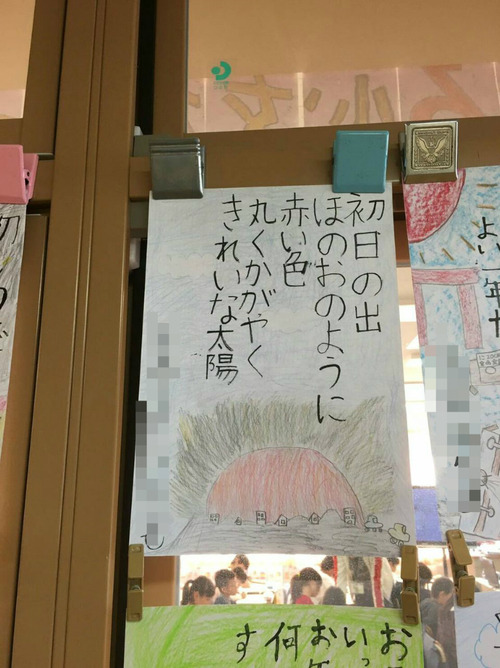 よい一年
初日の出
ほのおのように
赤い色
丸くかがやく
きれいな太陽
お
い
お
何
す
初